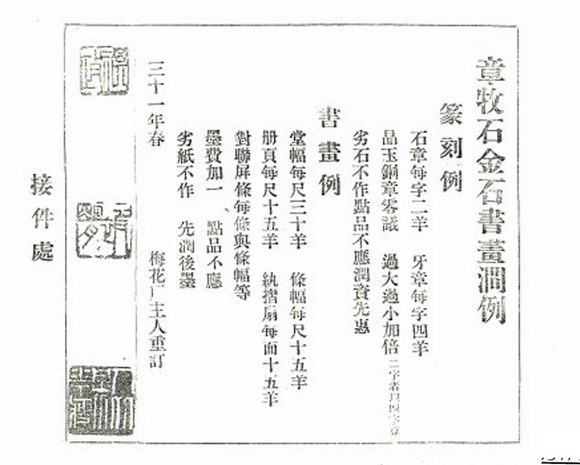 章牧石金石書畫潤例
篆刻例
石章每字二羊 牙章每字四羊
晶玉銅章零議 過大過小加倍
劣石不作點品不應潤資先惠
書畫例
堂幅每尺三十羊 條幅每尺十五羊
册頁每尺十五羊 紈摺扇每面十五羊
對聯屏條每條與條幅等
墨費加一 點品不應
劣紙不作 先潤後墨
三十一年春 梅花厂主人重訂
接件處